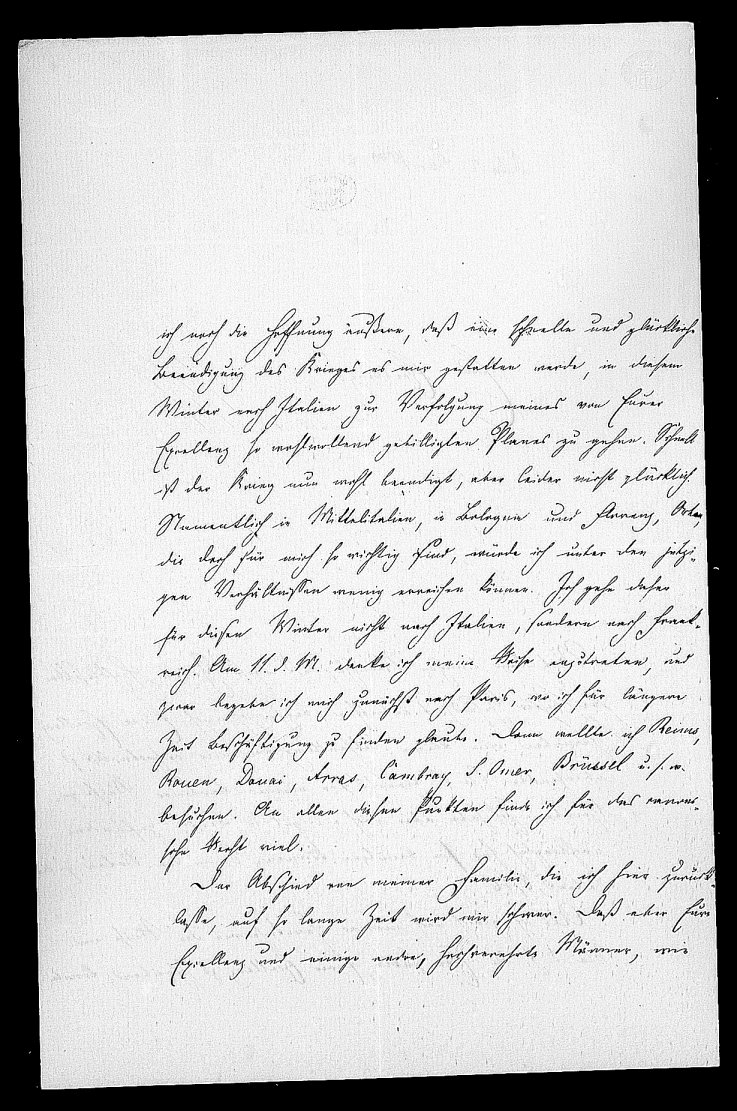 ich noch die Hoffnung äußern, daß eine schnelle und glückliche
Beendigung des Krieges es mir gestatten werde, in diesem
Winter nach Italien zur Verfolgung meines von Eurer
Excellenz so wohlwollend gebilligten Planes zu gehen. Schnell
ist der Krieg nun wohl beendigt, aber leider nicht glücklich.
Namentlich in Mittelitalien, in Bologna und Florenz, Orten,
die doch für mich so wichtig sind, würde ich unter den jetzi-
gen Verhältnissen wenig erreichen können. Ich gehe daher
für diesen Winter nicht nach Italien, sondern nach Frank-
reich. Am 11. d. M. denke ich meine Reise anzutreten, und
zwar begebe ich mich zunächst nach Paris, wo ich für längere
Zeit Beschäftigung zu finden glaube. Dann wollte ich Reims,
Rouen, Douai, Arras, Cambray, S. Omer, Brüssel u. s. w.
besuchen. An allen diesen Punkten finde ich für das canoni-
sche Recht viel.
Der Abschied von meiner Familie, die ich hier zurück-
lasse, auf so lange Zeit wird mir schwer. Daß aber Eure
Excellenz und einige andre, hochverehrte Männer, wie